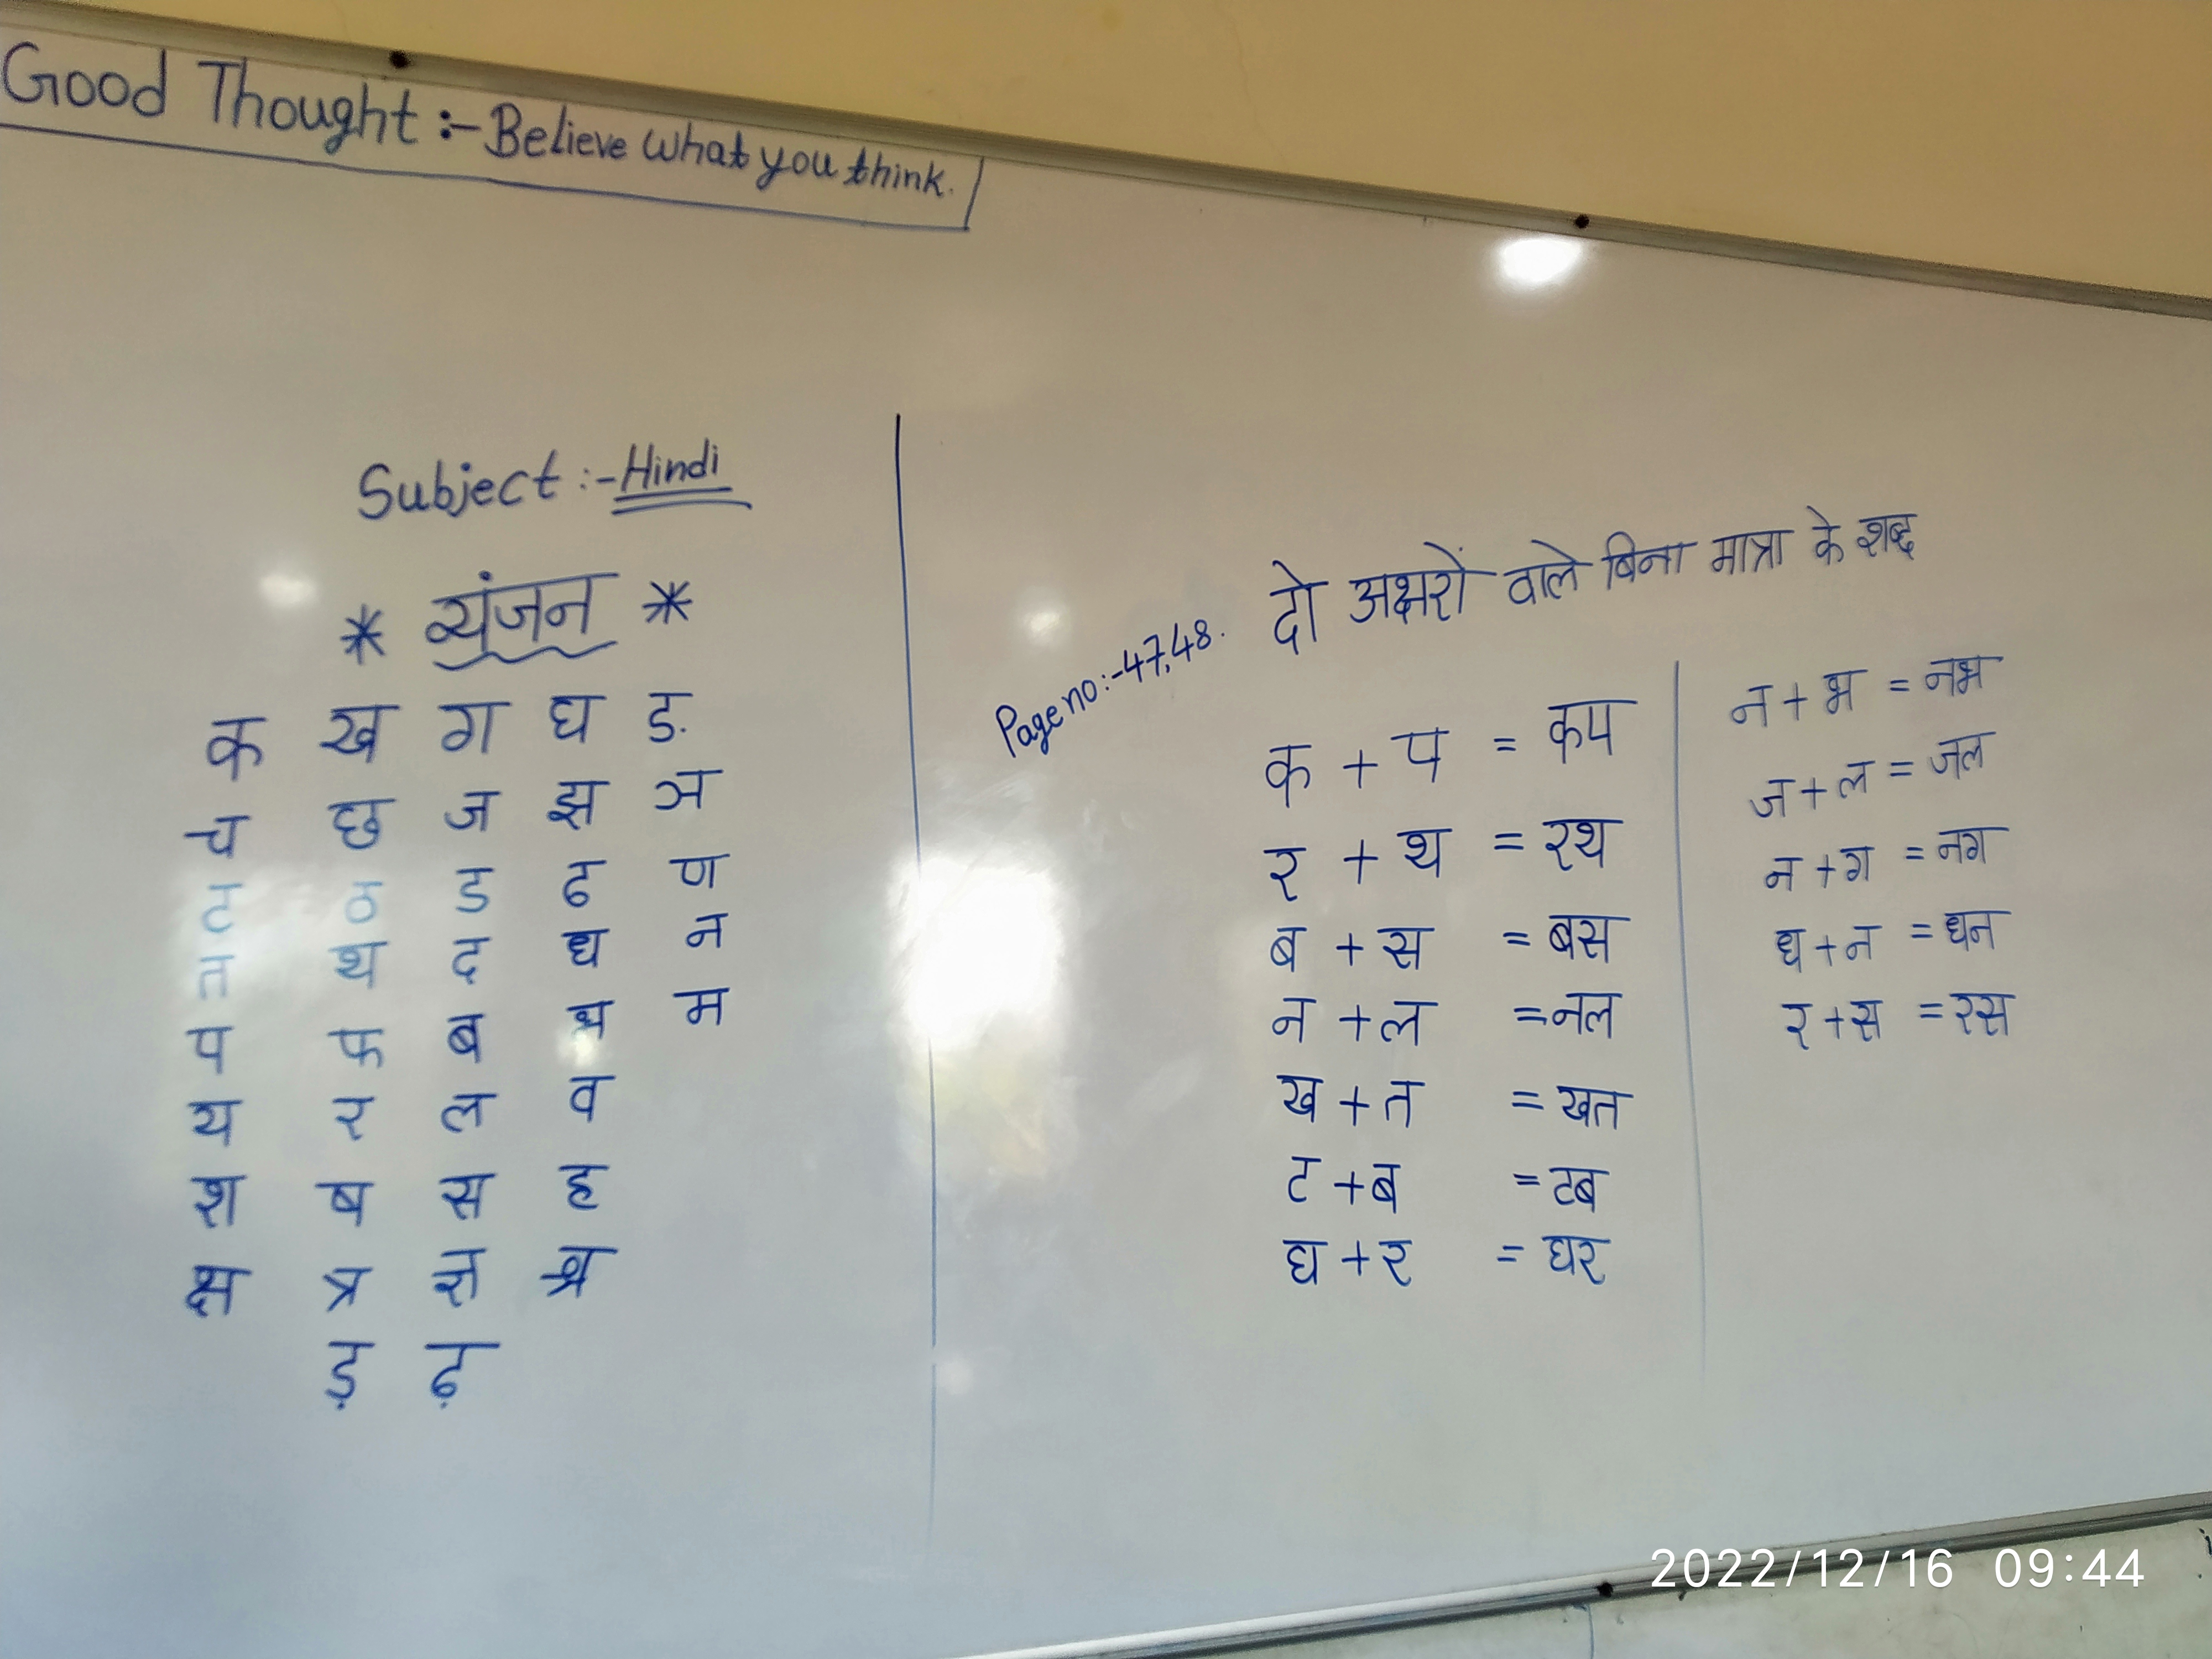 Good Thought :- Believe what you think.
Subject :- Hindi
* व्यंजन *
क ख ग घ ङ
च छ ज झ ञ
ट ठ ड ढ ण
त थ द ध न
प फ ब भ म
य र ल व
श ष स ह
क्ष त्र ज्ञ श्र
ड़ ढ़
Page no:-47,48.
दो अक्षरों वाले बिना मात्रा के शब्द
क + प = कप
र + थ = रथ
ब + स = बस
न + ल = नल
ख + त = खत
ट + ब = टब
घ + र = घर
न + भ = नभ
ज + ल = जल
न + ग = नग
ध + न = धन
र + स = रस
2022/12/16 09:44